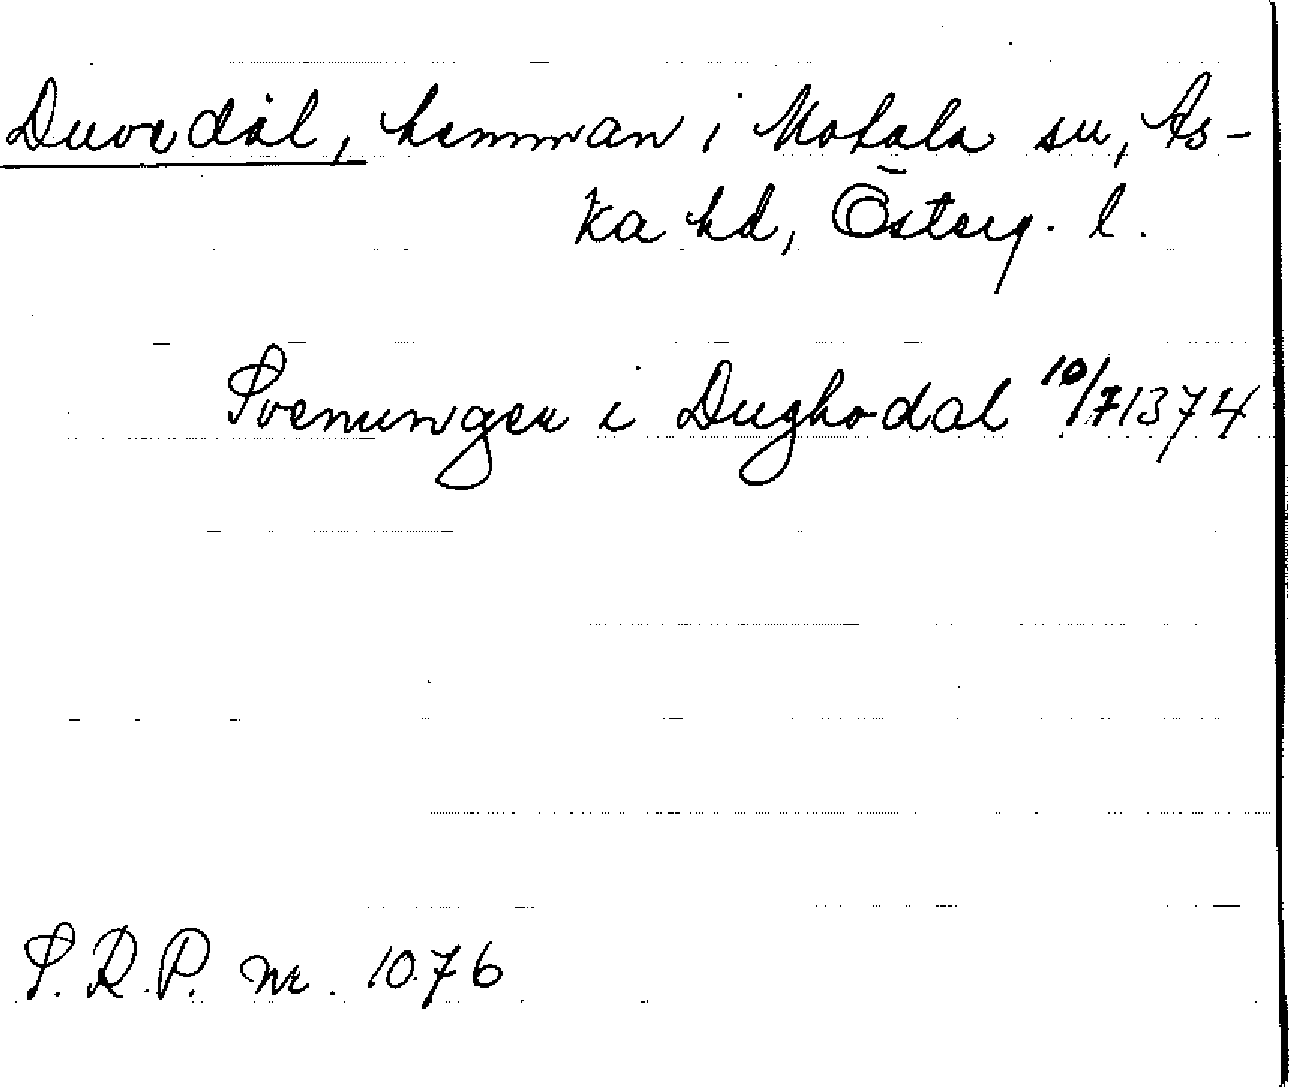 Duvedal, hemman i Motala sn, As-
ka hd, Österg. l.
Svenungær i Dughodal 10/7 1374
S.R.P. nr. 1076